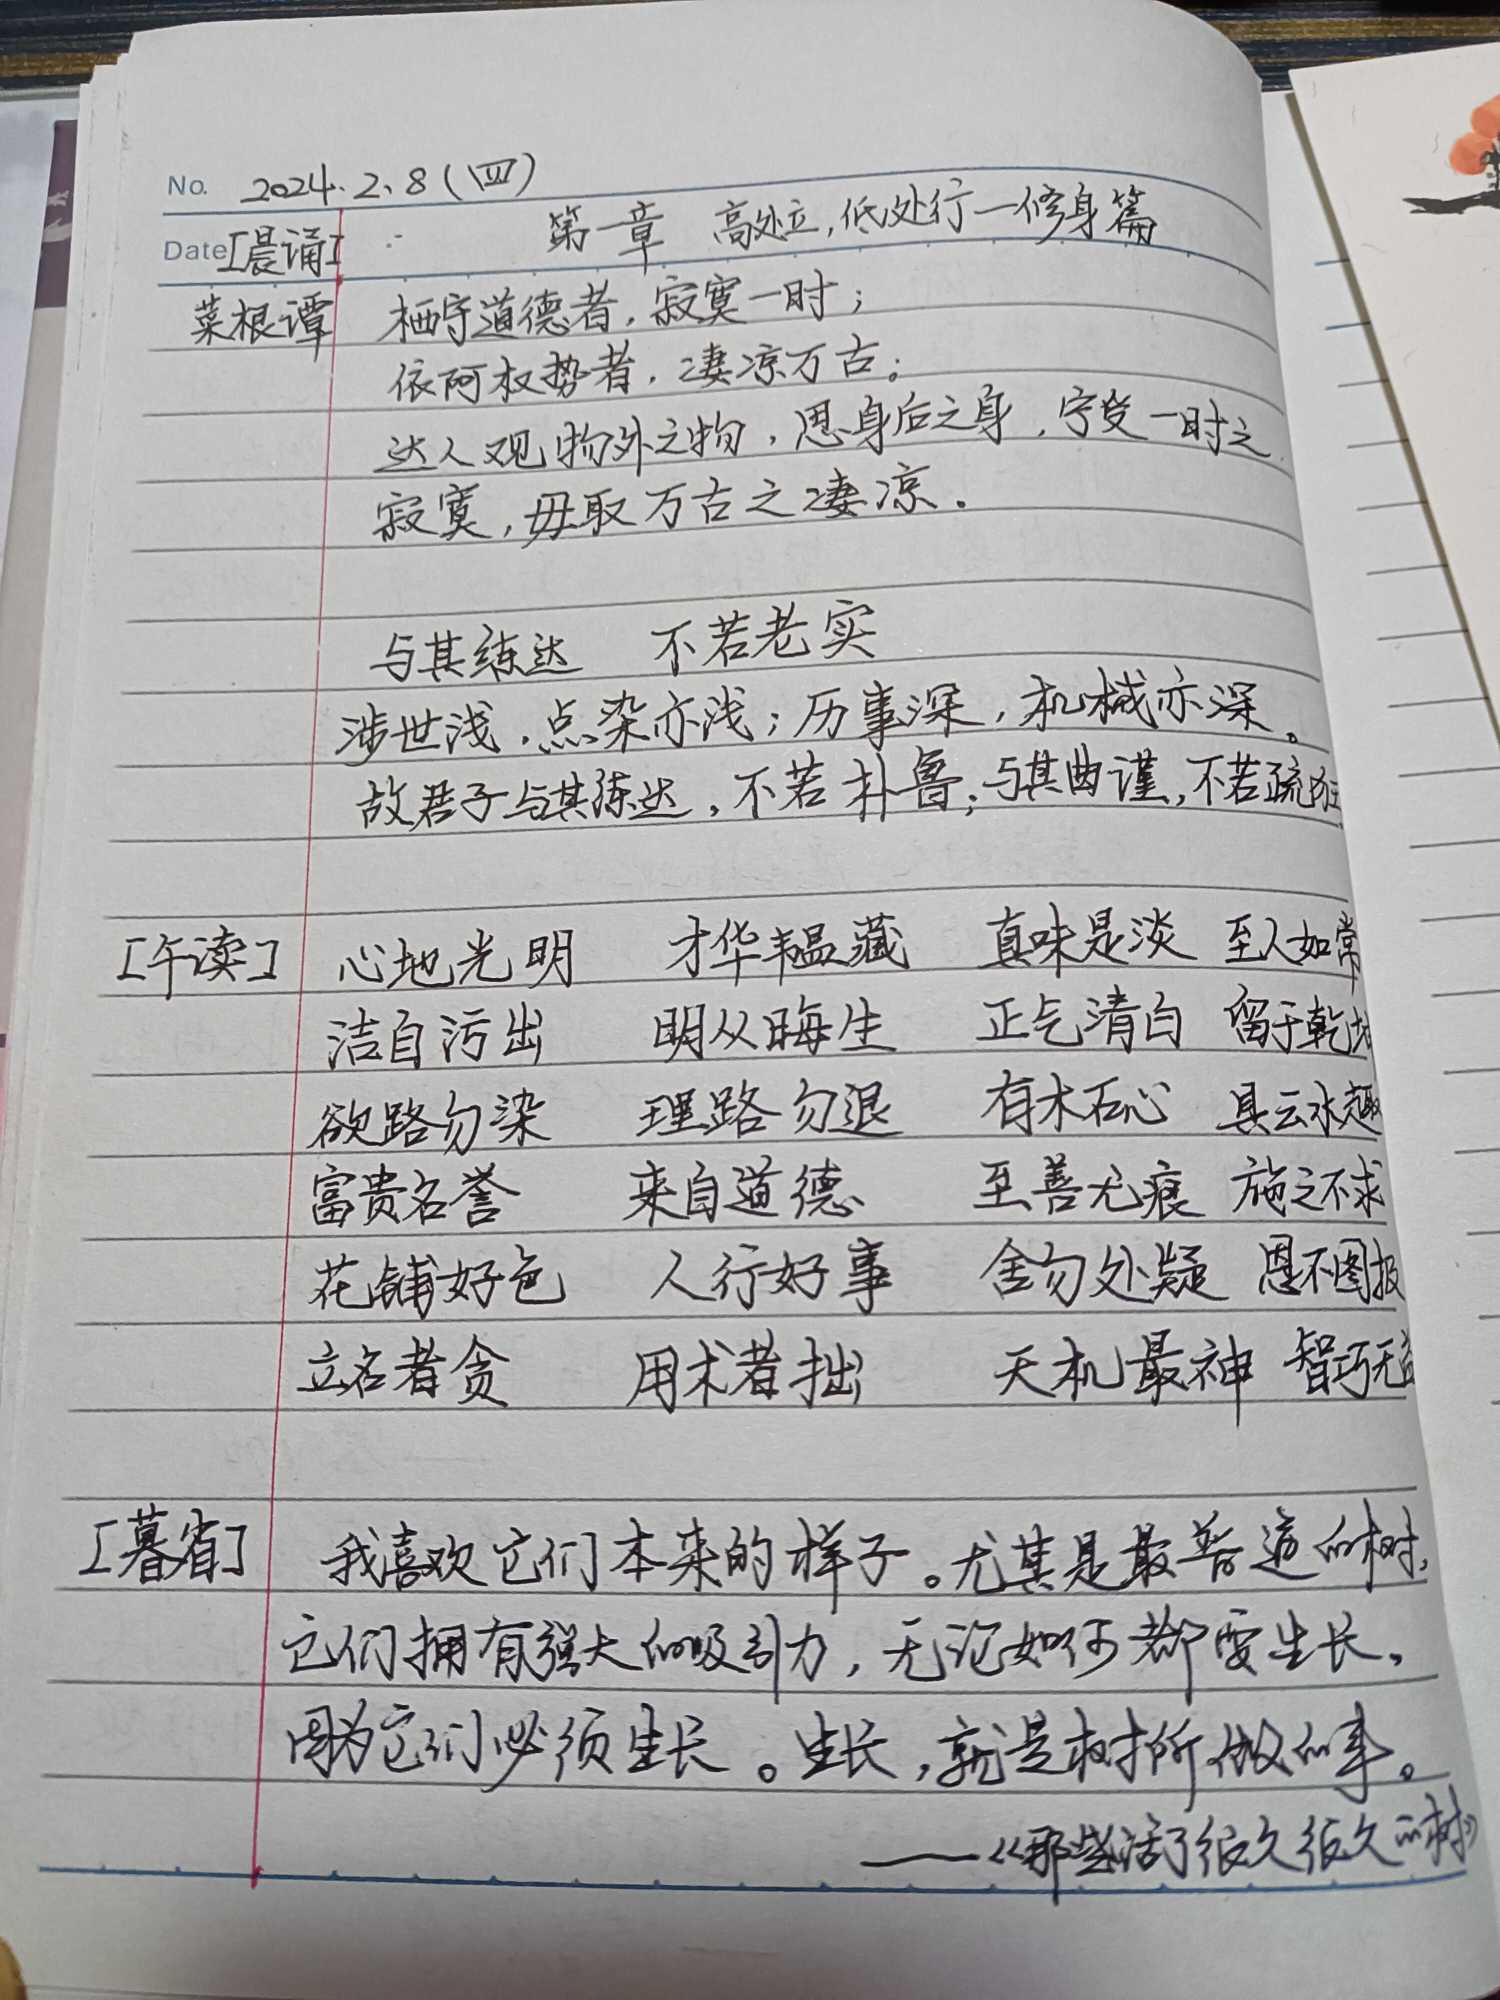 No. 2024.2.8(四)
Date [晨诵] 第一章 高处立,低处行—修身篇
菜根谭 栖守道德者,寂寞一时;
依阿权势者,凄凉万古。
达人观物外之物,思身后之身,宁受一时之
寂寞,毋取万古之凄凉。
与其练达 不若老实
涉世浅,点染亦浅;历事深,机械亦深。
故君子与其练达,不若朴鲁;与其曲谨,不若疏狂
[午读] 心地光明 才华韫藏 真味是淡 至人如常
洁自污出 明从晦生 正气清白 留于乾坤
欲路勿染 理路勿退 有木石心 具云水趣
富贵名誉 来自道德 至善无痕 施之不求
花铺好色 人行好事 舍勿处疑 恩不图报
立名者贪 用术者拙 天机最神 智巧无益
[暮省] 我喜欢它们本来的样子。尤其是最普通的树,
它们拥有强大的吸引力,无论如何都要生长。
因为它们必须生长。生长,就是树所做的事。
——《那些活了很久很久的树》